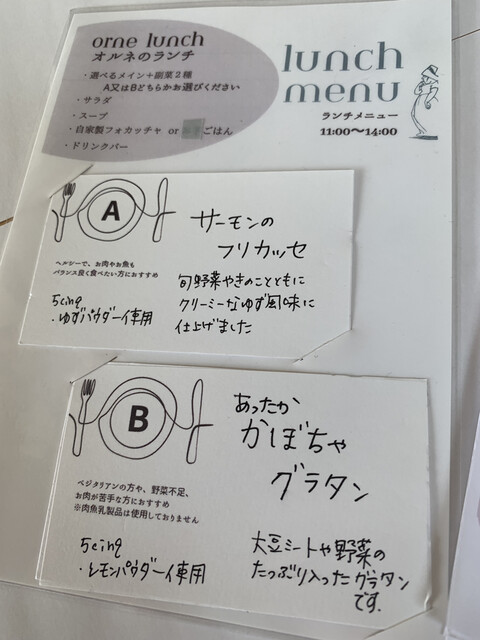 orne lunch
オルネのランチ
・選べるメイン+副菜2種
A又はBどちらかお選びください
・サラダ
・スープ
・自家製フォカッチャ or ごはん
・ドリンクバー
lunch
menu
ランチメニュー
11:00〜14:00
A
ヘルシーで、お肉やお魚も
バランス良く食べたい方におすすめ
5cing
・ゆずパウダー使用
サーモンの
フリカッセ
旬野菜やきのことともに
クリーミーなゆず風味に
仕上げました
B
ベジタリアンの方や、野菜不足、
お肉が苦手な方におすすめ
※肉魚乳製品は使用しておりません
5cing
・レモンパウダー使用
あったか
かぼちゃ
グラタン
大豆ミートや野菜の
たっぷり入ったグラタン
です.